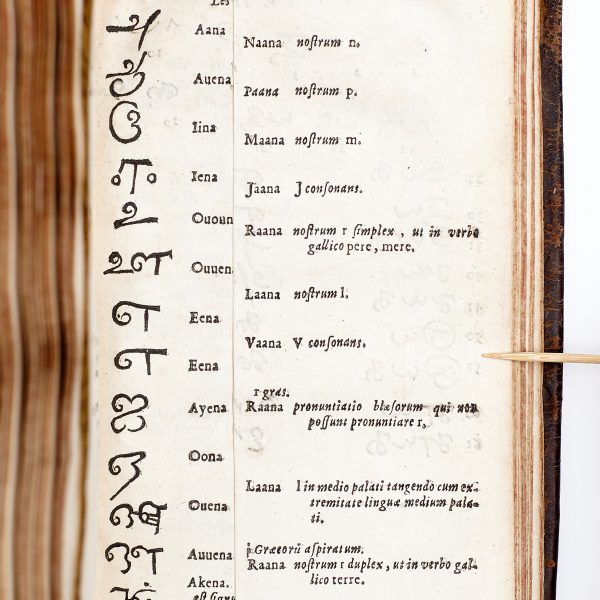 Les
Aana
Auena
Iina
Iena
உ Ououn
ஊ Ouuen
எ Eena
எ Eena
ஐ Ayena
ஒ Oona
Ouena
ஔ Auuena
Akena.
Naana noſtrum n.
Paana noſtrum p.
Maana noſtrum m.
Jaana J conſonans.
Raana noſtrum r ſimplex, ut in verbo
gallico pere, mere.
Laana noſtrum l.
Vaana V conſonans.
r gras.
Raana pronuntiatio blæſorum qui non
poſſunt pronuntiare r.
Laana l in medio palati tangendo cum ex-
tremitate linguæ medium pala-
ti.
ῥ Græcorū aſpiratum.
Raana noſtrum r duplex, ut in verbo gal-
lico terre.